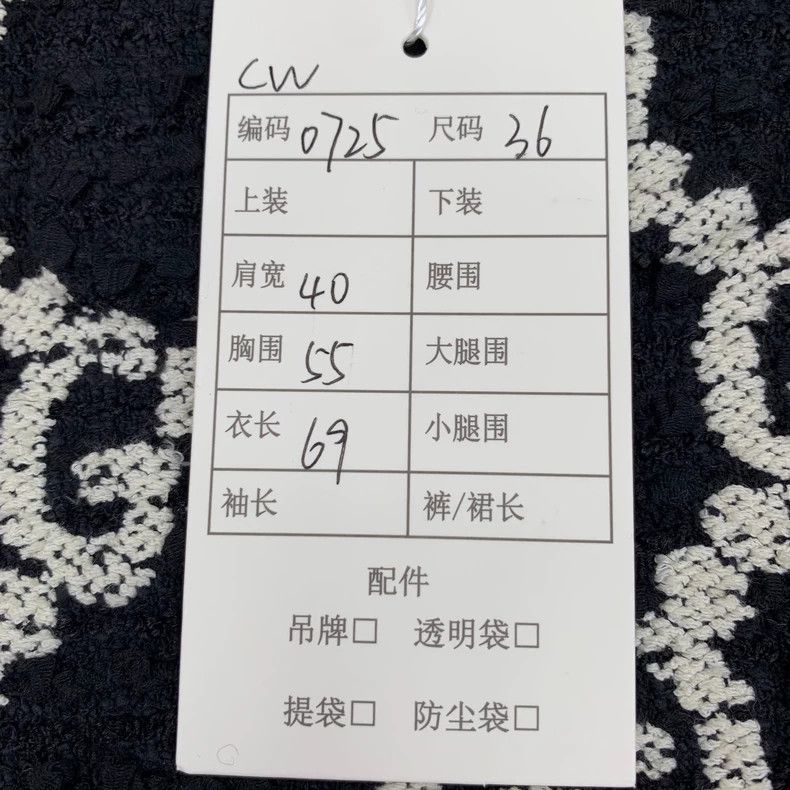 CW
编码 0725 尺码 36
上装 下装
肩宽 40 腰围
胸围 55 大腿围
衣长 69 小腿围
袖长 裤/裙长
配件
吊牌□ 透明袋□
提袋□ 防尘袋□